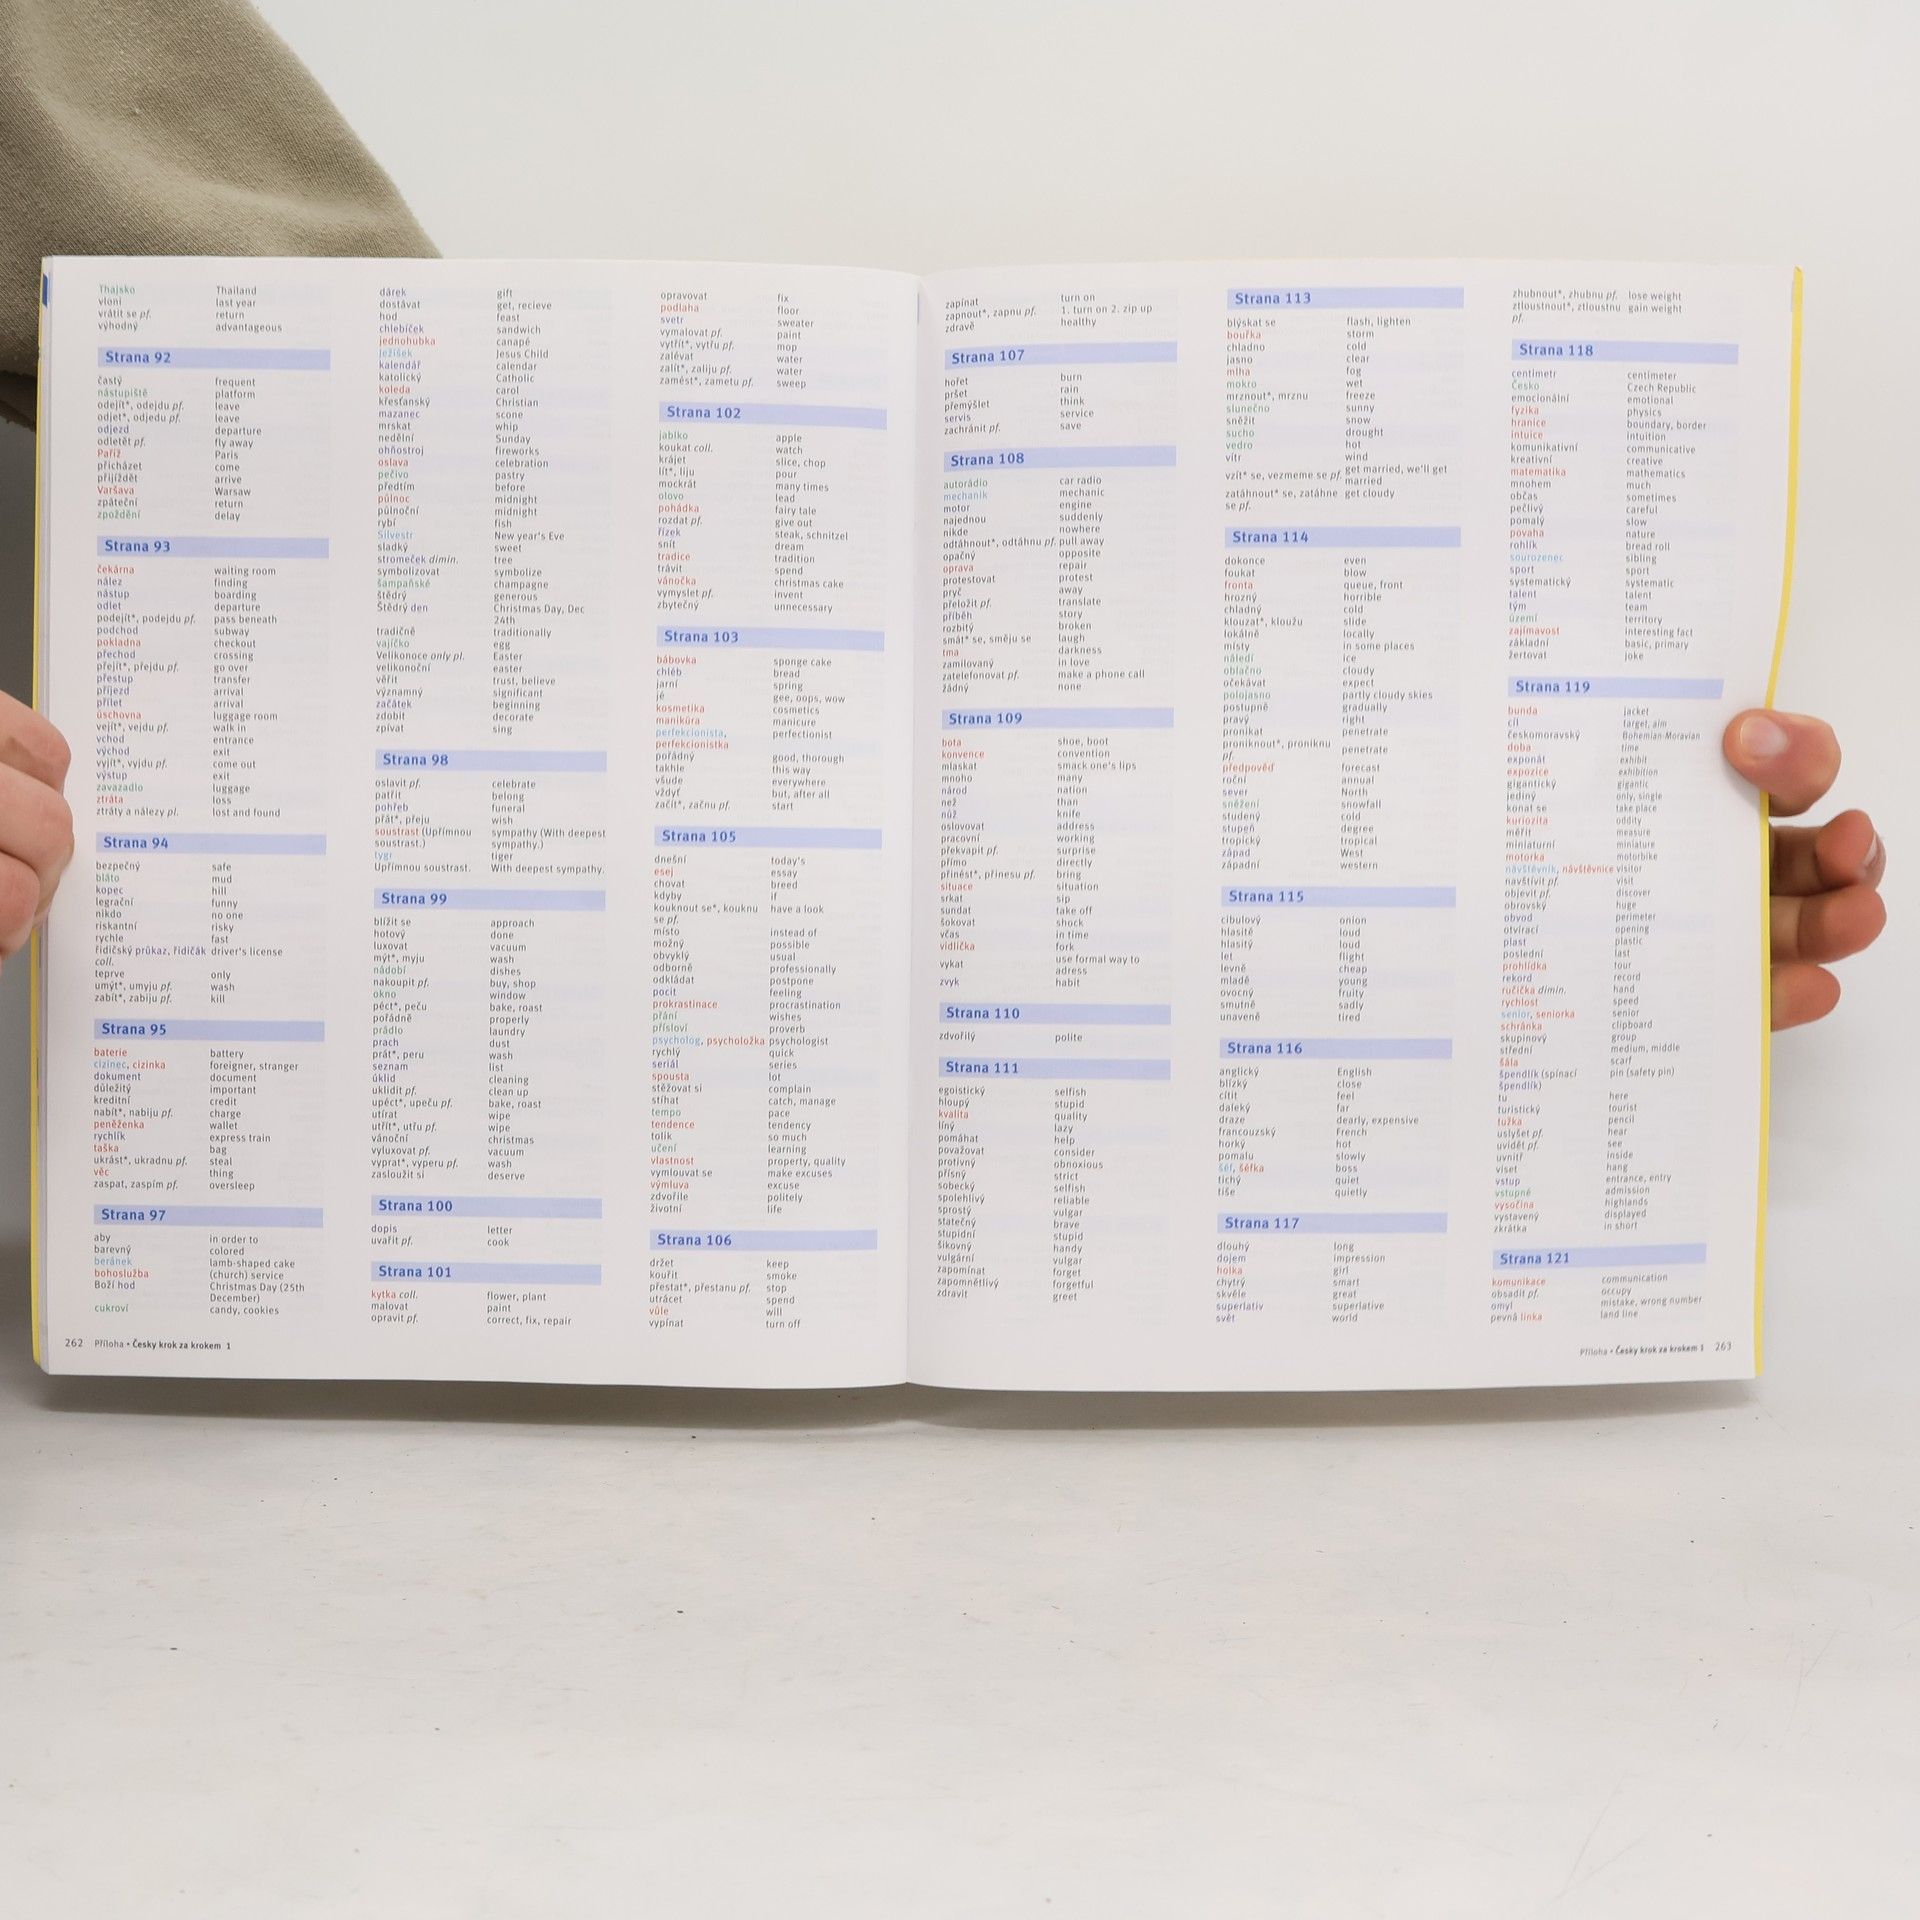 Thajsko Thailand
vloni last year
vrátit se pf. return
výhodný advantageous
Strana 92
častý frequent
nástupiště platform
odejít*, odejdu pf. leave
odjet*, odjedu pf. leave
odjezd departure
odletět pf. fly away
Paříž Paris
přicházet come
přijíždět arrive
Varšava Warsaw
zpáteční return
zpoždění delay
Strana 93
čekárna waiting room
nález finding
nástup boarding
odlet departure
podejít*, podejdu pf. pass beneath
podchod subway
pokladna checkout
přechod crossing
přejít*, přejdu pf. go over
přestup transfer
příjezd arrival
přílet arrival
úschovna luggage room
vejít*, vejdu pf. walk in
vchod entrance
východ exit
vyjít*, vyjdu pf. come out
výstup exit
zavazadlo luggage
ztráta loss
ztráty a nálezy pl. lost and found
Strana 94
bezpečný safe
bláto mud
kopec hill
legrační funny
nikdo no one
riskantní risky
rychle fast
řidičský průkaz, řidičák driver's license
coll.
teprve only
umýt*, umyju pf. wash
zabít*, zabiju pf. kill
Strana 95
baterie battery
cizinec, cizinka foreigner, stranger
dokument document
důležitý important
kreditní credit
nabít*, nabiju pf. charge
peněženka wallet
rychlík express train
taška bag
ukrást*, ukradnu pf. steal
věc thing
zaspat, zaspím pf. oversleep
Strana 97
aby in order to
barevný colored
beránek lamb-shaped cake
bohoslužba (church) service
Boží hod Christmas Day (25th
December)
cukroví candy, cookies
262 Příloha • Česky krok za krokem 1
dárek gift
dostávat get, recieve
hod feast
chlebíček sandwich
jednohubka canapé
Ježíšek Jesus Child
kalendář calendar
katolický Catholic
koleda carol
křesťanský Christian
mazanec scone
mrskat whip
nedělní Sunday
ohňostroj fireworks
oslava celebration
pečivo pastry
předtím before
půlnoc midnight
půlnoční midnight
rybí fish
Silvestr New year's Eve
sladký sweet
stromeček dimin. tree
symbolizovat symbolize
šampaňské champagne
štědrý generous
Štědrý den Christmas Day, Dec
24th
tradičně traditionally
vajíčko egg
Velikonoce only pl. Easter
velikonoční easter
věřit trust, believe
významný significant
začátek beginning
zdobit decorate
zpívat sing
Strana 98
oslavit pf. celebrate
patřit belong
pohřeb funeral
přát*, přeju wish
soustrast (Upřímnou sympathy (With deepest
soustrast.) sympathy.)
tygr tiger
Upřímnou soustrast. With deepest sympathy.
Strana 99
blížit se approach
hotový done
luxovat vacuum
mýt*, myju wash
nádobí dishes
nakoupit pf. buy, shop
okno window
péct*, peču bake, roast
pořádně properly
prádlo laundry
prach dust
prát*, peru wash
seznam list
úklid cleaning
uklidit pf. clean up
upéct*, upeču pf. bake, roast
utírat wipe
utřít*, utřu pf. wipe
vánoční christmas
vyluxovat pf. vacuum
vyprat*, vyperu pf. wash
zasloužit si deserve
Strana 100
dopis letter
uvařit pf. cook
Strana 101
kytka coll. flower, plant
malovat paint
opravit pf. correct, fix, repair
opravovat fix
podlaha floor
svetr sweater
vymalovat pf. paint
vytřít*, vytřu pf. mop
zalévat water
zalít*, zaliju pf. water
zamést*, zametu pf. sweep
Strana 102
jablko apple
koukat coll. watch
krájet slice, chop
lít*, liju pour
mockrát many times
olovo lead
pohádka fairy tale
rozdat pf. give out
řízek steak, schnitzel
snít dream
tradice tradition
trávit spend
vánočka christmas cake
vymyslet pf. invent
zbytečný unnecessary
Strana 103
bábovka sponge cake
chléb bread
jarní spring
jé gee, oops, wow
kosmetika cosmetics
manikúra manicure
perfekcionista, perfectionist
perfekcionistka
pořádný good, thorough
takhle this way
všude everywhere
vždyť but, after all
začít*, začnu pf. start
Strana 105
dnešní today's
esej essay
chovat breed
kdyby if
kouknout se*, kouknu have a look
se pf.
místo instead of
možný possible
obvyklý usual
odborně professionally
odkládat postpone
pocit feeling
prokrastinace procrastination
přání wishes
přísloví proverb
psycholog, psycholožka psychologist
rychlý quick
seriál series
spousta lot
stěžovat si complain
stíhat catch, manage
tempo pace
tendence tendency
tolik so much
učení learning
vlastnost property, quality
vymlouvat se make excuses
výmluva excuse
zdvořile politely
životní life
Strana 106
držet keep
kouřit smoke
přestat*, přestanu pf. stop
utrácet spend
vůle will
vypínat turn off
zapínat turn on
zapnout*, zapnu pf. 1. turn on 2. zip up
zdravě healthy
Strana 107
hořet burn
pršet rain
přemýšlet think
servis service
zachránit pf. save
Strana 108
autorádio car radio
mechanik mechanic
motor engine
najednou suddenly
nikde nowhere
odtáhnout*, odtáhnu pf. pull away
opačný opposite
oprava repair
protestovat protest
pryč away
přeložit pf. translate
příběh story
rozbitý broken
smát* se, směju se laugh
tma darkness
zamilovaný in love
zatelefonovat pf. make a phone call
žádný none
Strana 109
bota shoe, boot
konvence convention
mlaskat smack one's lips
mnoho many
národ nation
než than
nůž knife
oslovovat address
pracovní working
překvapit pf. surprise
přímo directly
přinést*, přinesu pf. bring
situace situation
srkat sip
sundat take off
šokovat shock
včas in time
vidlička fork
vykat use formal way to
adress
zvyk habit
Strana 110
zdvořilý polite
Strana 111
egoistický selfish
hloupý stupid
kvalita quality
líný lazy
pomáhat help
považovat consider
protivný obnoxious
přísný strict
sobecký selfish
spolehlivý reliable
sprostý vulgar
statečný brave
stupidní stupid
šikovný handy
vulgární vulgar
zapomínat forget
zapomnětlivý forgetful
zdravit greet
Strana 113
blýskat se flash, lighten
bouřka storm
chladno cold
jasno clear
mlha fog
mokro wet
mrznout*, mrznu freeze
slunečno sunny
sněžit snow
sucho drought
vedro hot
vítr wind
vzít* se, vezmeme se pf. get married, we'll get
married
zatáhnout* se, zatáhne get cloudy
se pf.
Strana 114
dokonce even
foukat blow
fronta queue, front
hrozný horrible
chladný cold
klouzat*, kloužu slide
lokálně locally
místy in some places
náledí ice
oblačno cloudy
očekávat expect
polojasno partly cloudy skies
postupně gradually
pravý right
pronikat penetrate
proniknout*, proniknu penetrate
pf.
předpověď forecast
roční annual
sever North
sněžení snowfall
studený cold
stupeň degree
tropický tropical
západ West
západní western
Strana 115
cibulový onion
hlasitě loud
hlasitý loud
let flight
levně cheap
mladě young
ovocný fruity
smutně sadly
unaveně tired
Strana 116
anglický English
blízký close
cítit feel
daleký far
draze dearly, expensive
francouzský French
horký hot
pomalu slowly
šéf, šéfka boss
tichý quiet
tiše quietly
Strana 117
dlouhý long
dojem impression
holka girl
chytrý smart
skvěle great
superlativ superlative
svět world
zhubnout*, zhubnu pf. lose weight
ztloustnout*, ztloustnu gain weight
pf.
Strana 118
centimetr centimeter
Česko Czech Republic
emocionální emotional
fyzika physics
hranice boundary, border
intuice intuition
komunikativní communicative
kreativní creative
matematika mathematics
mnohem much
občas sometimes
pečlivý careful
pomalý slow
povaha nature
rohlík bread roll
sourozenec sibling
sport sport
systematický systematic
talent talent
tým team
území territory
zajímavost interesting fact
základní basic, primary
žertovat joke
Strana 119
bunda jacket
cíl target, aim
českomoravský Bohemian-Moravian
doba time
exponát exhibit
expozice exhibition
gigantický gigantic
jediný only, single
konat se take place
kuriozita oddity
měřit measure
miniaturní miniature
motorka motorbike
návštěvník, návštěvnice visitor
navštívit pf. visit
objevit pf. discover
obrovský huge
obvod perimeter
otvírací opening
plast plastic
poslední last
prohlídka tour
rekord record
ručička dimin. hand
rychlost speed
senior, seniorka senior
schránka clipboard
skupinový group
střední medium, middle
šála scarf
špendlík (spínací pin (safety pin)
špendlík)
tu here
turistický tourist
tužka pencil
uslyšet pf. hear
uvidět pf. see
uvnitř inside
viset hang
vstup entrance, entry
vstupné admission
vysočina highlands
vystavený displayed
zkrátka in short
Strana 121
komunikace communication
obsadit pf. occupy
omyl mistake, wrong number
pevná linka land line
Příloha • Česky krok za krokem 1 263